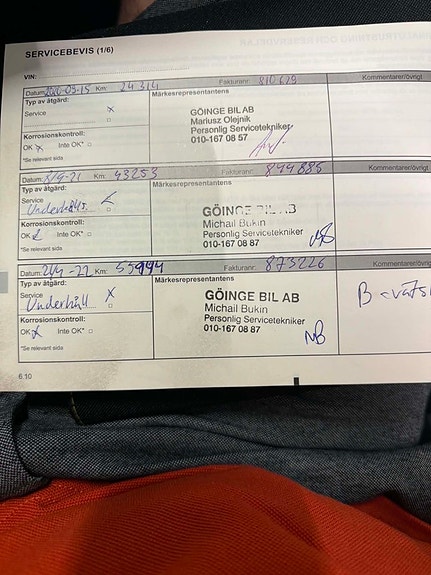 SERVICEBEVIS (1/6)
VIN:
Datum: 2020-03-15 Km: 24314 Fakturanr: 810629 Kommentarer/övrigt
Typ av åtgärd: Märkesrepresentantens
Service x
GÖINGE BIL AB
Mariusz Olejnik
Personlig Servicetekniker
010-167 08 57
Korrosionskontroll:
OK x Inte OK*
*Se relevant sida
Datum: 8/9-21 Km: 43253 Fakturanr: 844885 Kommentarer/övrigt
Typ av åtgärd: Märkesrepresentantens
Service
Underhåll
GÖINGE BIL AB
Michail Bukin
Personlig Servicetekniker
010-167 08 87
Korrosionskontroll:
OK Inte OK*
*Se relevant sida
Datum: Km: 55994 Fakturanr: 873226 Kommentarer/övrigt
Typ av åtgärd: Märkesrepresentantens
Service x
Underhåll
GÖINGE BIL AB
Michail Bukin
Personlig Servicetekniker
010-167 08 87
MB
B-väts
Korrosionskontroll:
OK x Inte OK*
*Se relevant sida
6.10